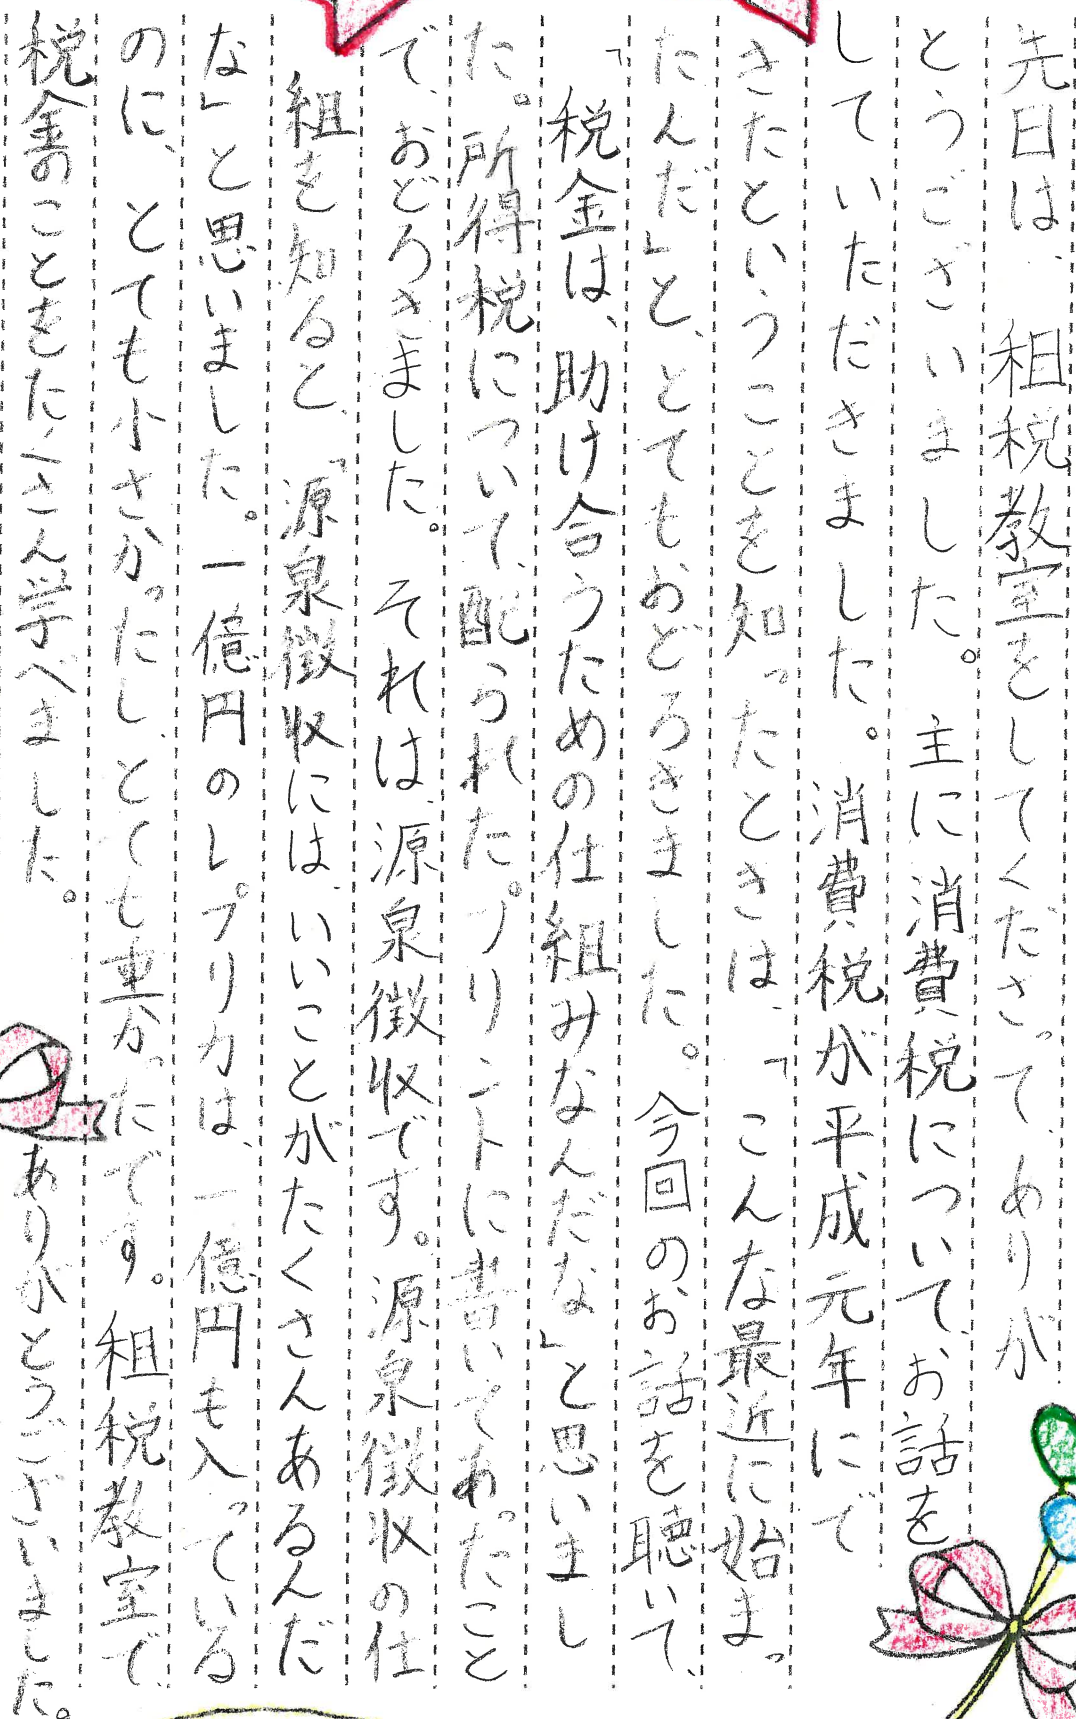 先日は、租税教室をしてくださって、ありが
とうございました。主に消費税について、お話を
していただきました。消費税が平成元年にで
きたということを知ったときは、「こんな最近に始まっ
たんだ」と、とてもおどろきました。今回のお話を聴いて、
「税金は、助け合うための仕組みなんだな」と思いまし
た。所得税について、配られたプリントに書いてあったこと
で、おどろきました。それは、源泉徴収です。源泉徴収の仕
組を知ると、「源泉徴収には、いいことがたくさんあるんだ
な」と思いました。一億円のレプリカは、一億円も入っている
のに、とても小さかったし、とても重かったです。租税教室で、
税金のことをたくさん学べました。ありがとうございました。